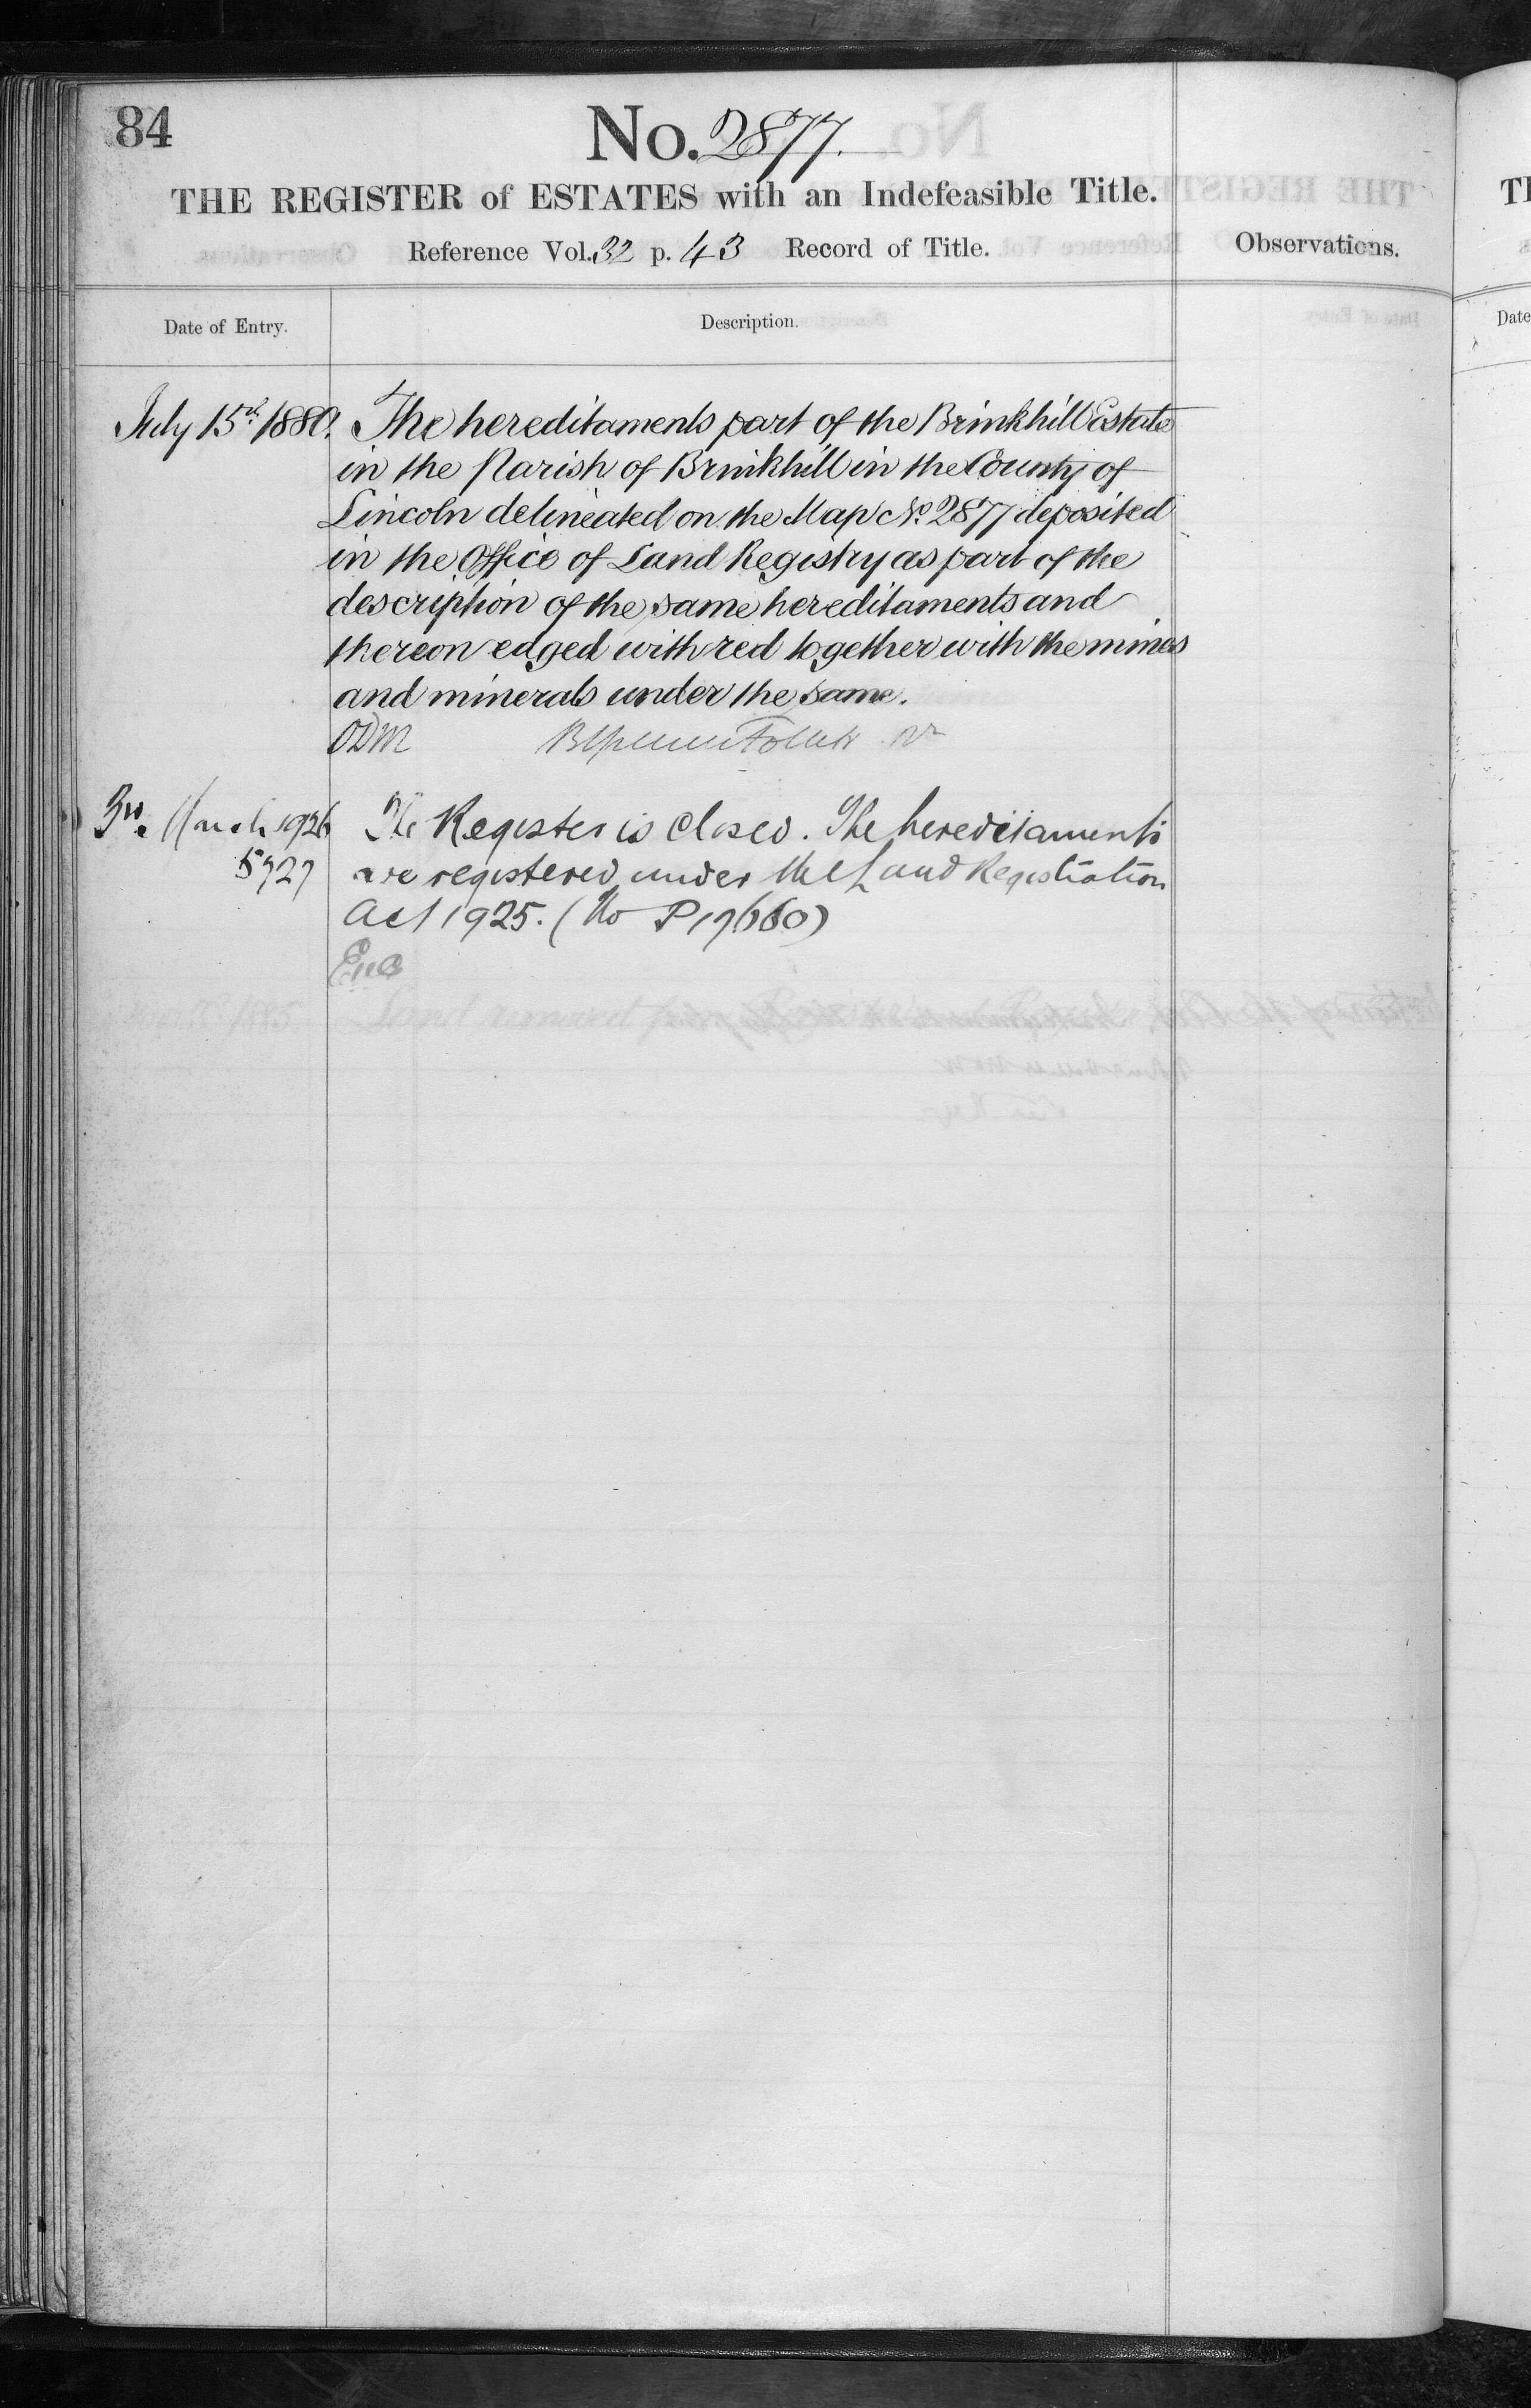 84
No. 2877.
THE REGISTER of ESTATES with an Indefeasible Title.
Reference Vol. 32 p. 43 Record of Title.
Observations.
Date of Entry.
Description.
July 15th 1880. The hereditaments part of the Brinkhill Estate
in the Parish of Brinkhill in the County of
Lincoln delineated on the Map No. 2877 deposited
in the Office of Land Registry as part of the
description of the same hereditaments and
thereon edged with red together with the mines
and minerals under the same.
ODM
3rd. March 1926 The Register is closed. The hereditaments
5927 are registered under the Land Registration
Act 1925. (No P19660)
Date